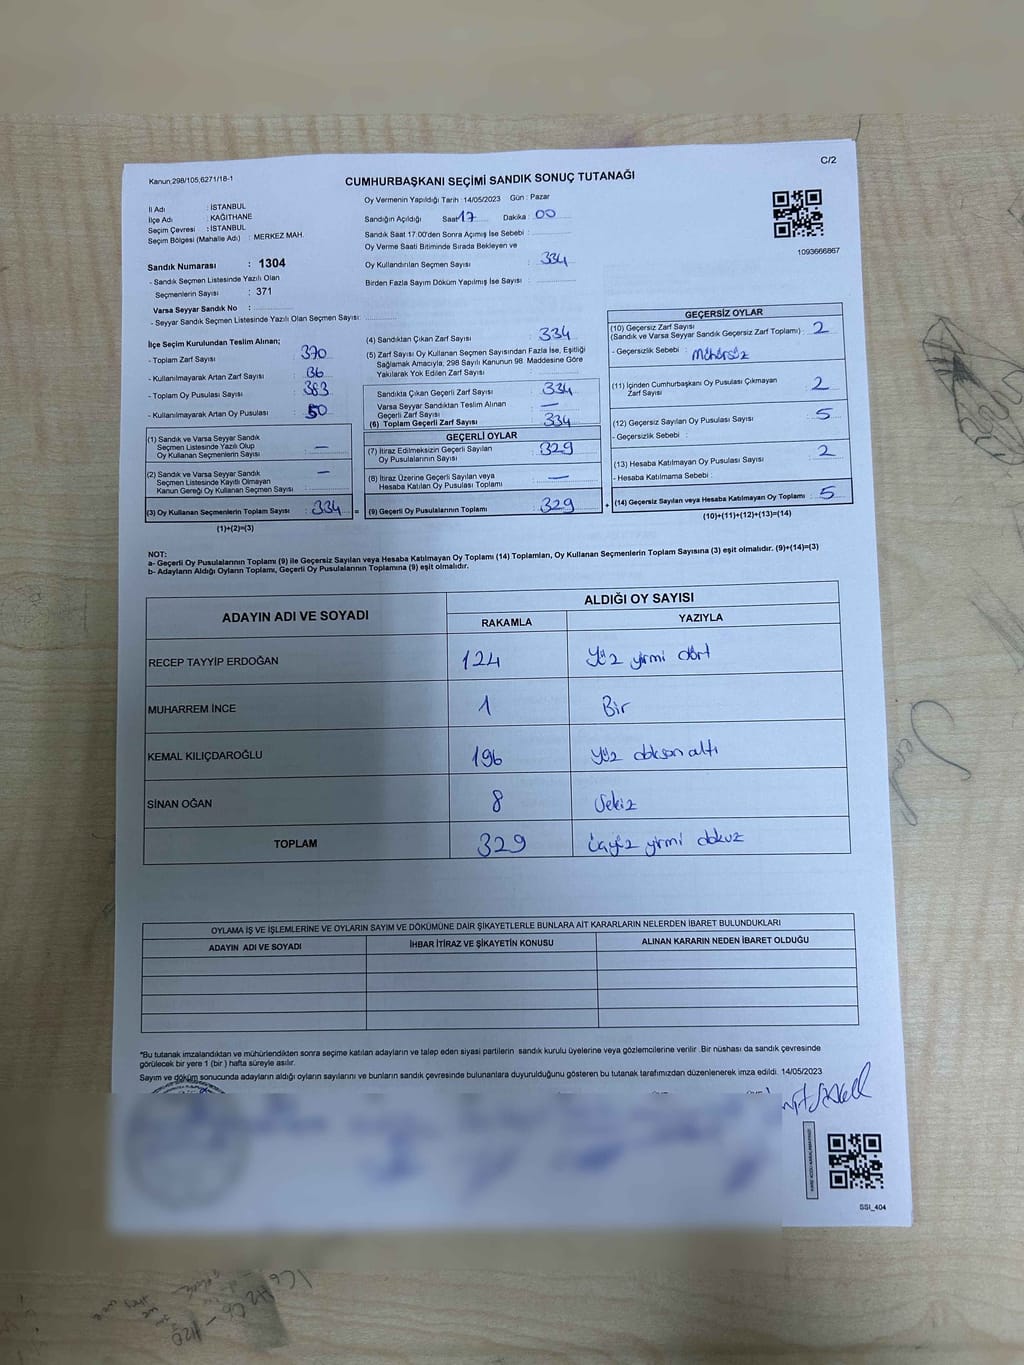 C/2
Kanun;298/105,6271/18-1
CUMHURBAŞKANI SEÇİMİ SANDIK SONUÇ TUTANAĞI
İl Adı : İSTANBUL
İlçe Adı : KAĞITHANE
Seçim Çevresi : İSTANBUL
Seçim Bölgesi (Mahalle Adı) : MERKEZ MAH.
Oy Vermenin Yapıldığı Tarih : 14/05/2023 Gün : Pazar
Sandığın Açıldığı Saat 17 Dakika : 00
Sandık Saat 17:00'den Sonra Açımış İse Sebebi :
Oy Verme Saati Bitiminde Sırada Bekleyen ve
Oy Kullandırılan Seçmen Sayısı : 334
Birden Fazla Sayım Döküm Yapılmış İse Sayısı :
1093666867
Sandık Numarası : 1304
- Sandık Seçmen Listesinde Yazılı Olan
Seçmenlerin Sayısı : 371
Varsa Seyyar Sandık No :
- Seyyar Sandık Seçmen Listesinde Yazılı Olan Seçmen Sayısı:
İlçe Seçim Kurulundan Teslim Alınan;
- Toplam Zarf Sayısı : 370
- Kullanılmayarak Artan Zarf Sayısı : 36
- Toplam Oy Pusulası Sayısı : 383
- Kullanılmayarak Artan Oy Pusulası : 50
(1) Sandık ve Varsa Seyyar Sandık
Seçmen Listesinde Yazılı Olup
Oy Kullanan Seçmenlerin Sayısı : —
(2) Sandık ve Varsa Seyyar Sandık
Seçmen Listesinde Kayıtlı Olmayan
Kanun Gereği Oy Kullanan Seçmen Sayısı : —
(3) Oy Kullanan Seçmenlerin Toplam Sayısı : 334 =
(1)+(2)=(3)
(4) Sandıktan Çıkan Zarf Sayısı : 334
(5) Zarf Sayısı Oy Kullanan Seçmen Sayısından Fazla İse, Eşitliği
Sağlamak Amacıyla, 298 Sayılı Kanunun 98. Maddesine Göre
Yakılarak Yok Edilen Zarf Sayısı :
Sandıkta Çıkan Geçerli Zarf Sayısı : 334
Varsa Seyyar Sandıktan Teslim Alınan
Geçerli Zarf Sayısı : —
(6) Toplam Geçerli Zarf Sayısı : 334
GEÇERLİ OYLAR
(7) İtiraz Edilmeksizin Geçerli Sayılan
Oy Pusulalarının Sayısı : 329
(8) İtiraz Üzerine Geçerli Sayılan veya
Hesaba Katılan Oy Pusulası Toplamı : —
(9) Geçerli Oy Pusulalarının Toplamı : 329 +
GEÇERSİZ OYLAR
(10) Geçersiz Zarf Sayısı
(Sandık ve Varsa Seyyar Sandık Geçersiz Zarf Toplamı) : 2
- Geçersizlik Sebebi : Mühürsüz
(11) İçinden Cumhurbaşkanı Oy Pusulası Çıkmayan
Zarf Sayısı : 2
(12) Geçersiz Sayılan Oy Pusulası Sayısı : 5
- Geçersizlik Sebebi :
(13) Hesaba Katılmayan Oy Pusulası Sayısı : 2
- Hesaba Katılmama Sebebi :
(14) Geçersiz Sayılan veya Hesaba Katılmayan Oy Toplamı : 5
(10)+(11)+(12)+(13)=(14)
NOT:
a- Geçerli Oy Pusulalarının Toplamı (9) ile Geçersiz Sayılan veya Hesaba Katılmayan Oy Toplamı (14) Toplamları, Oy Kullanan Seçmenlerin Toplam Sayısına (3) eşit olmalıdır. (9)+(14)=(3)
b- Adayların Aldığı Oyların Toplamı, Geçerli Oy Pusulalarının Toplamına (9) eşit olmalıdır.
ADAYIN ADI VE SOYADI ALDIĞI OY SAYISI
RAKAMLA YAZIYLA
RECEP TAYYİP ERDOĞAN 124 Yüz yirmi dört
MUHARREM İNCE 1 Bir
KEMAL KILIÇDAROĞLU 196 Yüz doksan altı
SİNAN OĞAN 8 Sekiz
TOPLAM 329 üçyüz yirmi dokuz
OYLAMA İŞ VE İŞLEMLERİNE VE OYLARIN SAYIM VE DÖKÜMÜNE DAİR ŞİKAYETLERLE BUNLARA AİT KARARLARIN NELERDEN İBARET BULUNDUKLARI
ADAYIN ADI VE SOYADI İHBAR İTİRAZ VE ŞİKAYETİN KONUSU ALINAN KARARIN NEDEN İBARET OLDUĞU
*Bu tutanak imzalandıktan ve mühürlendikten sonra seçime katılan adayların ve talep eden siyasi partilerin sandık kurulu üyelerine veya gözlemcilerine verilir. Bir nüshası da sandık çevresinde
görülecek bir yere 1 (bir) hafta süreyle asılır.
Sayım ve döküm sonucunda adayların aldığı oyların sayılarını ve bunların sandık çevresinde bulunanlara duyurulduğunu gösteren bu tutanak tarafımızdan düzenlenerek imza edildi. 14/05/2023
SSI_404